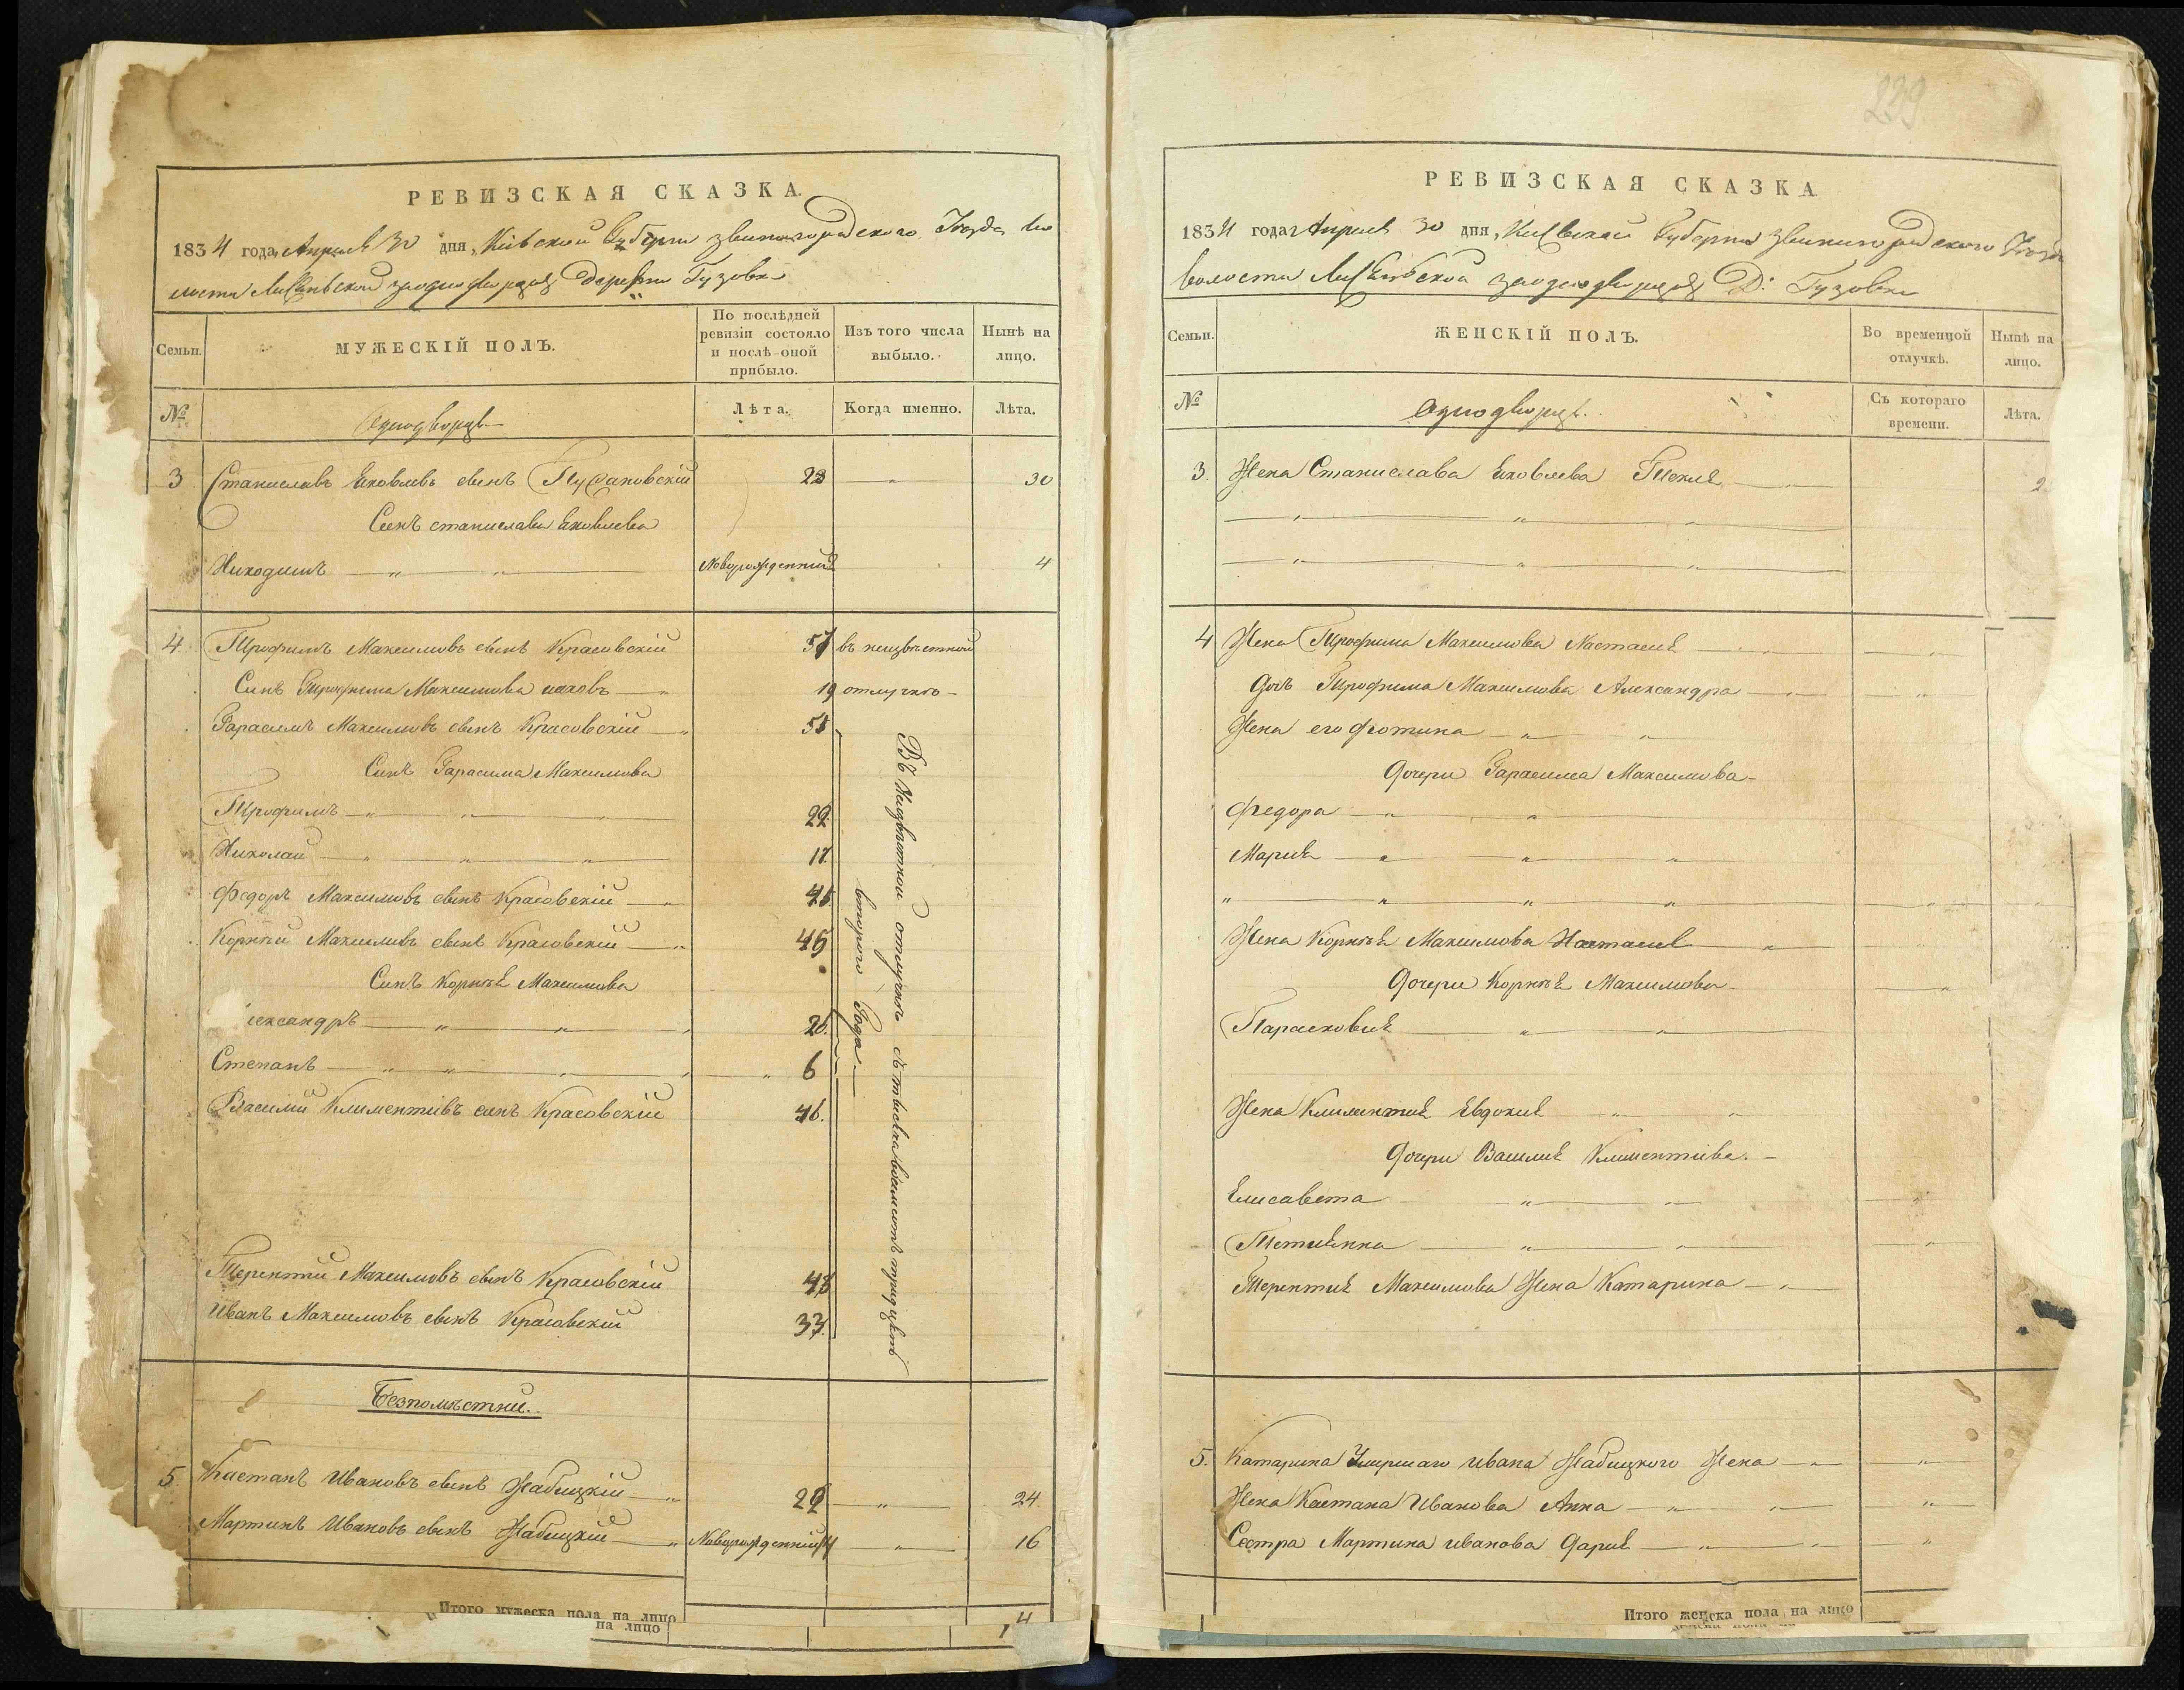 РЕВИЗСКАЯ СКАЗКА.
1834 года Апреля 30 дня, Кіевской Губерніи Звенигородского Уезда Во
лости Лисянской заоднодворцовъ деревни Гузовки
Семьи.
МУЖЕСКІЙ ПОЛЪ.
По послѣдней ревизіи состояло и послѣ оной прибыло.
Изъ того числа выбыло.
Нынѣ на лицо.
№
Однодворцы
Лѣта.
Когда именно.
Лѣта.
3 Станиславъ Яковлевъ сынъ 23 — " — 30
Сынъ станислава Яковлева
Никодимъ — " — " — Новорожденный 4
4 Трофимъ Максимовъ сынъ Красовскій 57 въ неизвѣстной
Сынъ Трофима Максимова иаковъ — " 19 отлучкѣ —
Гарасимъ Максимовъ сынъ Красовскій — " 55
Сынъ Гарасима Максимова
Трофимъ — " — " — " 22
Николай — " — " — " 17
Федоръ Максимовъ сынъ Красовскій — " 45
Корнѣй Максимовъ сынъ Красовскій — " 45
Сынъ Корнѣя Максимова
лександръ — " — " — " 26
Степанъ — " — " — " 6
Василий Климентіевъ сынъ Красовскій 46.
Терентий Максимовъ сынъ Красовскій 43
Иванъ Максимовъ сынъ Красовскій 33
Въ Неизвѣстной отлучкѣ съ тысяча восимсотъ тридцать
второго Года —
Безпомѣстныи..
5 Каетанъ Ивановъ сынъ Жабицкій — " 29 — " — 24
Мартинъ Ивановъ сынъ Жабицкій — " Новорожденный — " — 16
Итого мужеска пола на лицо 4
на лицо 1
239
РЕВИЗСКАЯ СКАЗКА
1834 года Апреля 30 дня, Кіевской Губерніи Звенигородского Уезда
Волости Лисянской заоднодворцовъ Д: Гузовки
Семьи.
ЖЕНСКІЙ ПОЛЪ.
Во временной отлучкѣ.
Нынѣ на лицо.
№
Однодворцы.
Съ котораго времени.
Лѣта.
3. Жена Станислава Яковлева Текля — 2
— " — " — "
— " — " — "
4 Жена Трофима Максимова Настасия — "
Дочь Трофима Максимова Александра — "
Жена его Фотина — " — "
Дочери Гарасима Максимова —
Федора — " — "
Мария — " — " — "
" — " — " — "
Жена Корнѣя Максимова Настасия — "
Дочери Корнѣя Максимова —
Парасковия — " — "
Жена Климентия Евдокия — " — "
Дочери Василия Климентіева. —
Елисавета — " — "
Тетиянна — " — "
Терентия Максимова Жена Катарина — "
5. Катарина Умершаго ивана Жабицкого Жена — "
Жена Каетана Иванова Анна — " — "
Сестра Мартина иванова Дария — " — "
Итого женска пола на лицо